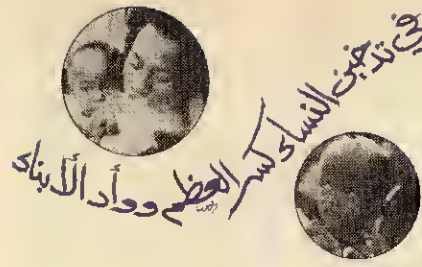 في تدجين النساء كسر العظم ووأد الأبناء